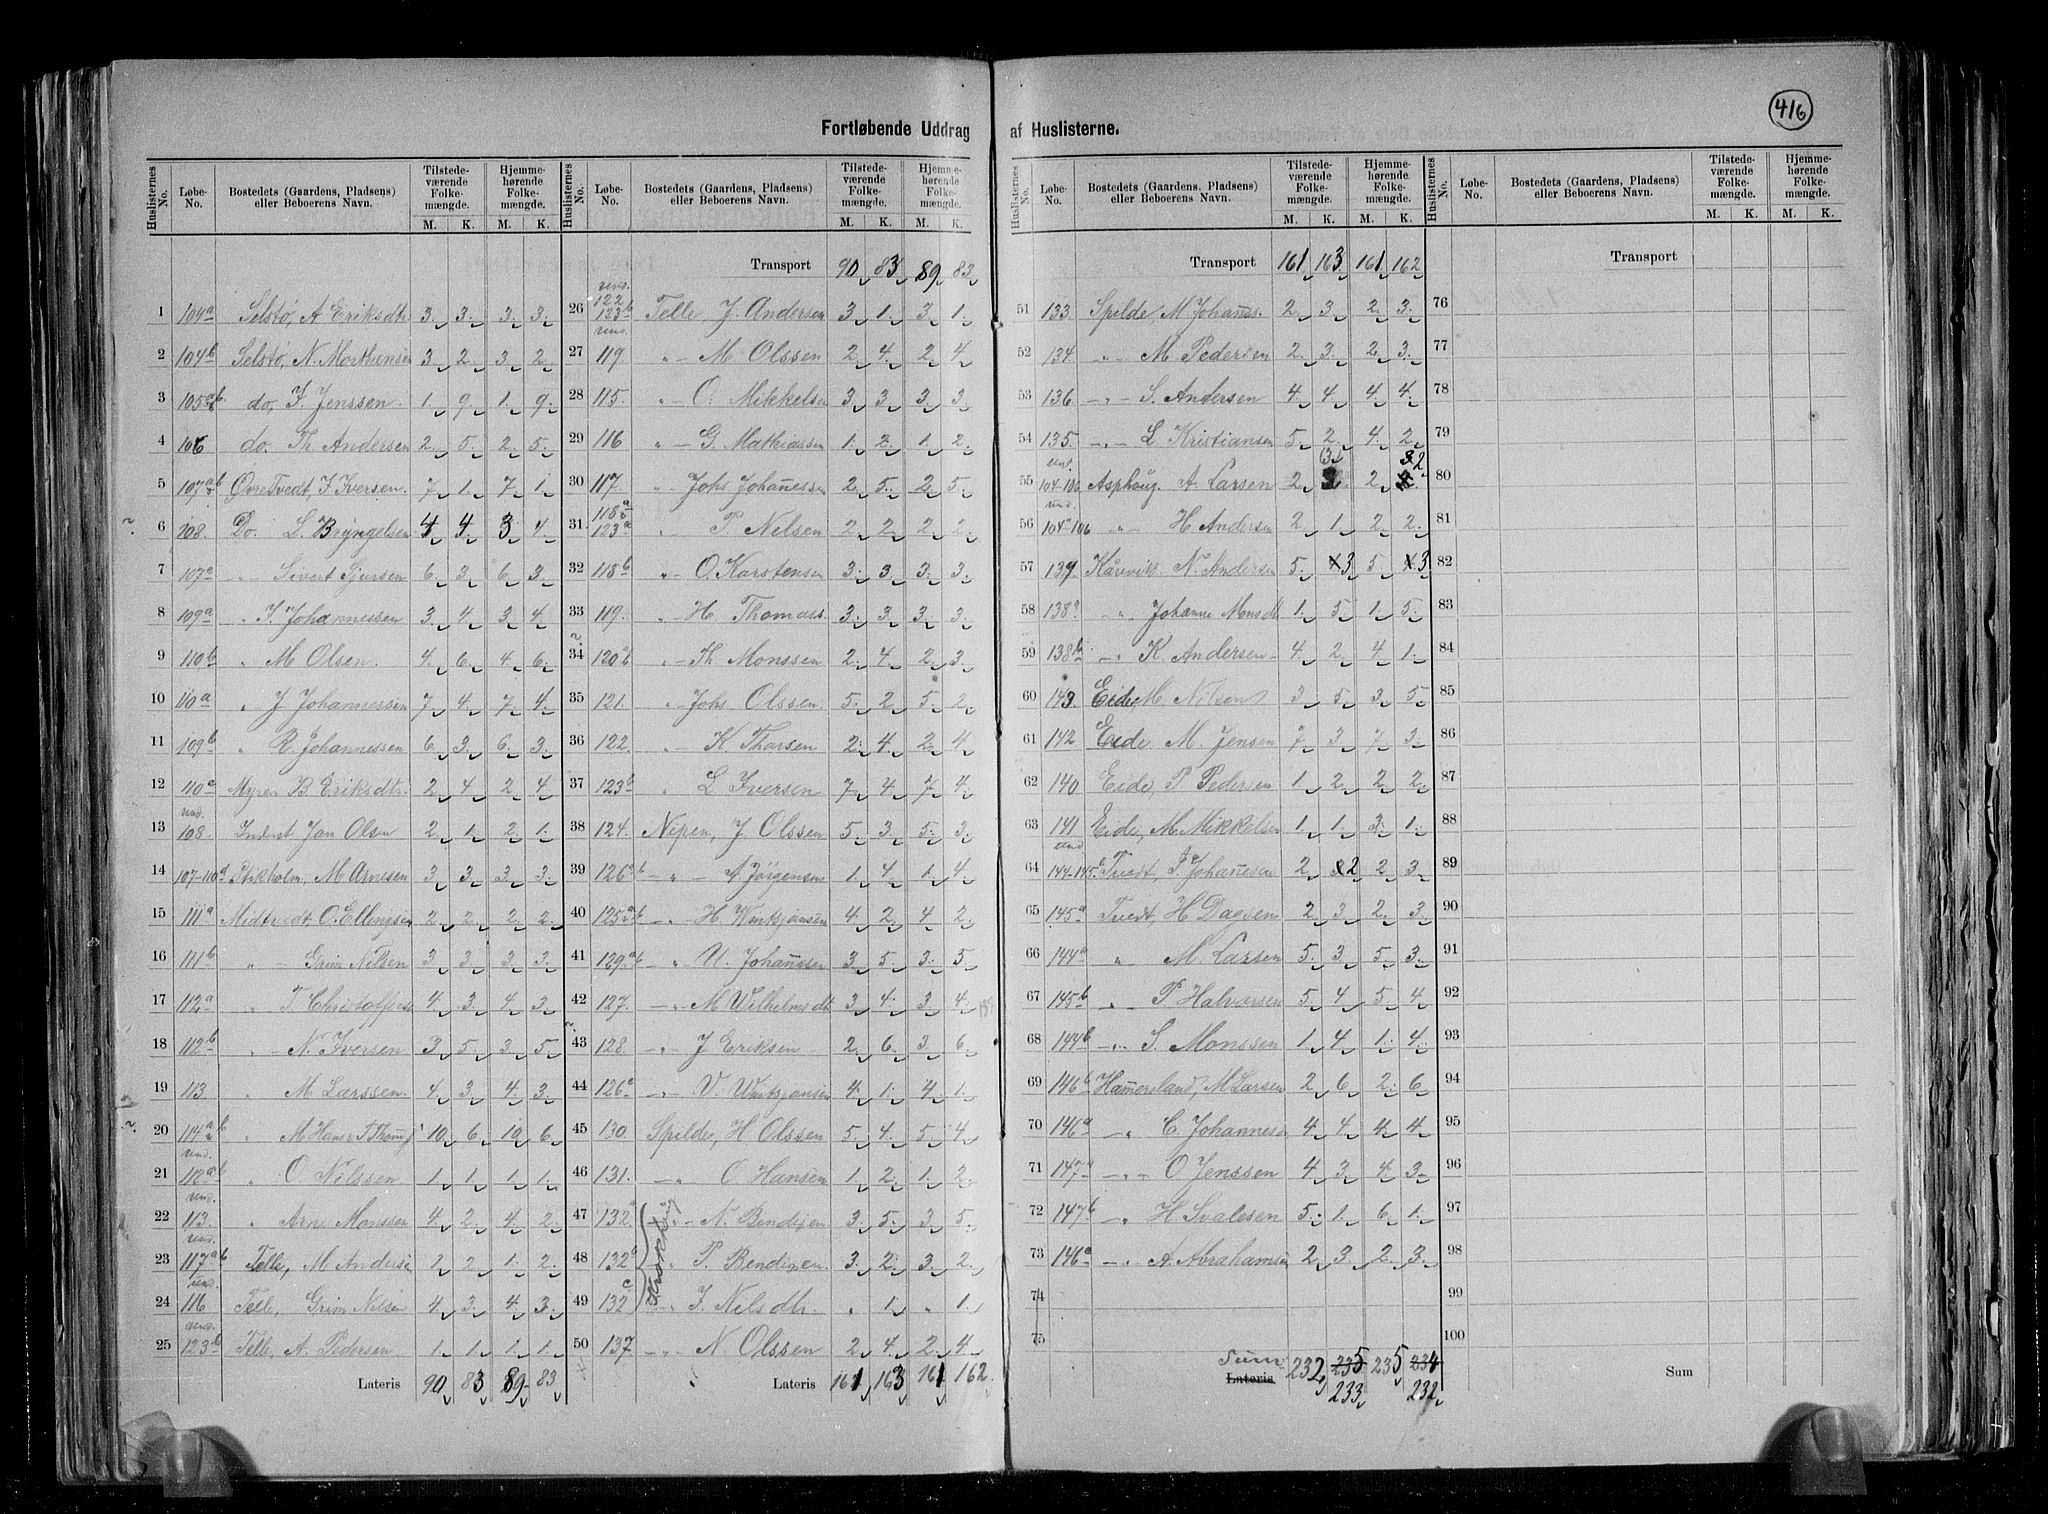 416
Fortløbende Uddrag af Huslisterne.
Huslisternes No. Løbe-No. Bostedets (Gaardens, Pladsens) eller Beboerens Navn. Tilstede-værende Folke-mængde. Hjemme-hørende Folke-mængde. M. K. M. K.
1 104a Selstø, A Eriksdtr 3. 3. 3. 3.
2 104b Selstø, N. Morthensen 3 2. 3 2.
3 105ab do, J. Jenssen. 1. 9. 1. 9.
4 106 do. Th. Andersen 2. 5. 2. 5.
5 107ab Øvre Tvedt, J Iversen. 7. 1. 7. 1.
6 108. Do. L. Bryngelsen 4 4. 3 4.
7 107c -"- Sivert 6. 3. 6. 3.
8 109a " J. Johannessen 3. 4. 3. 4.
9 110b " M Olsen. 4. 6. 4. 6.
10 110a " J Johannessen 7. 4. 7. 4.
11 109b " R. Johannessen 6. 3. 6. 3.
12 110c Myren B Eriksdtr. 2. 4. 2 4.
und.
13 108. Jan Olsn 2. 1. 2. 1.
14 107-110d M Arnesen 3. 3. 3. 3.
15 111a Midtvedt, O. Ellingsen 2. 2. 2. 2.
16 111b " - Grim Nilsen 3. 3. 3. 3.
17 112a " T. Christoffersen 4. 3. 4 3.
18 112b " N. Iversen 3. 5. 3. 5.
19 113. " M Larssen. 4 3. 4. 3.
20 114ab " M Hans. 10. 6. 10. 6.
und.
21 112ab " O. Nilssen 1. 1. 1. 1.
und.
22 113. " Arne Monssen 4. 2. 4. 2.
und.
23 117ab Telle, M Andersen 1. 2. 1. 2.
und.
24 116 Telle, Grim Nilsen 4. 3. 4. 3.
und.
25 123b Telle, A. Pedersen 1. 1. 1. 1.
Lateris 90 83 89 83
Huslisternes No. Løbe-No. Bostedets (Gaardens, Pladsens) eller Beboerens Navn. Tilstede-værende Folke-mængde. Hjemme-hørende Folke-mængde. M. K. M. K.
Transport 90 83 89 83
und. 122
26 123b Telle, J. Andersen 3 1. 3. 1.
und.
27 119. " - M Olssen 2. 4. 2 4
28 115. " - O. Mikkelsen 3. 3. 3. 3.
29 116 " - G. Mathiassen 1. 2. 1. 2.
30 117. " Johs Johannessen 2. 5. 2. 5.
118a
31 123a " P. Nilsen 2. 2. 2. 2.
32 118b " O. Karstensen 3. 3. 3. 3.
33 119. " - H Thomass. 3. 3. 3. 3.
34 120ab " - Th. Monssen 2. 4. 2. 3.
35 121. " Johs Olssen. 5. 2. 5. 2.
36 122. " - K Thorsen 2. 4. 2. 4
37 123b " L Iversen 7. 4. 7. 4.
38 124. Nepen, J. Olssen 5. 3. 5. 3.
39 126ab - " - A Jörgensen 1. 4. 1. 4.
40 125ab - " - H. 4. 2. 4 2.
41 " U. Johannssen 3. 5. 3. 5.
42 127. - " - M Wilhelmsdtr 3. 4. 3. 4.
43 128. - " - J Eriksen 2. 6. 3. 6.
44 126c - " - V. 4. 1. 4. 1.
45 130. Spilde, H Olssen 5. 4. 5. 4.
46 131. " O Hansen 1. 2. 1. 2.
47 132a - " - N. Bendixen 3. 5. 3. 5.
48 132b " P. Bendixen. 3. 2. 3. 2.
49 132c " J. Nilsdtr. " 1. " 1.
50 137. - " - N. Olssen 2. 4. 2. 4.
Lateris 161 163 161 162.
Huslisternes No. Løbe-No. Bostedets (Gaardens, Pladsens) eller Beboerens Navn. Tilstede-værende Folke-mængde. Hjemme-hørende Folke-mængde. M. K. M. K.
Transport 161 163 161 162
51 133. Spilde, M Johanss. 2. 3. 2. 3.
52 134. " M Pedersen 2. 3. 2. 3.
53 136. - " - S. Andersen 4. 4. 4. 4.
54 135. - " - L Kristiansen 5. 2. 4. 2.
und.
55 104-106 Asphaug. A Larsen 2. 3 2. 2
und.
56 104-106 " H Andersen 2. 1. 2. 2.
57 139 Kårevik N. Andersen 5. 3 5. 3
58 138a " Johanne Monsdt 1. 5. 1. 5.
59 138b - " - K. Andersen - 4. 2. 4. 1.
60 143. Eide, M. Nilsen 3. 5. 3. 5.
61 142 Eide, M. Jensen 7. 3. 7. 3.
62 140 Eide, P. Pedersen 1. 2. 2. 2.
63 141 Eide, M. Mikkelsen 1. 1. 3. 1.
und
64 144-145c Tvedt, J. Johannessen 2. 2 2. 3.
65 145a Tvedt, H Dagsen 2. 3. 2. 3.
66 144a " M Larsen 5. 3. 5. 3.
67 145b " P Halvorsen 5. 4. 5. 4.
68 144b - " - S. Monssen 1. 4. 1. 4.
69 146b Hammersland, M Larsen 2. 6. 2. 6.
70 146a - " C. Johannessn 4. 4. 4. 4.
71 147a - " - O Jenssen 4. 3. 4. 3.
72 147b - " H. Svalesen 5. 1. 6. 1.
73 146a - " A. Abrahamsen 2. 3. 2. 3.
74
75
Sum Lateris 232 235 235 234
233 232
Huslisternes No. Løbe-No. Bostedets (Gaardens, Pladsens) eller Beboerens Navn. Tilstede-værende Folke-mængde. Hjemme-hørende Folke-mængde. M. K. M. K.
Transport
76
77
78
79
80
81
82
83
84
85
86
87
88
89
90
91
92
93
94
95
96
97
98
99
100
Sum